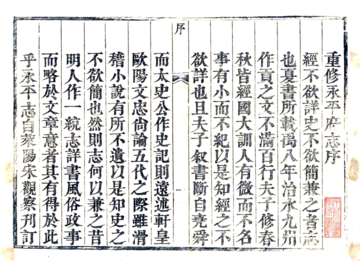 重修永平府志序
經不欲詳史不欲簡兼之者志
也夏書所載禹八年治水九州
作貢之文不滿百行夫子修春
秋皆經國大訓人有微而不名
事有小而不紀以是知經之不
欲詳也且夫子叙書斷自堯舜
序
而太史公作史記則遠述軒皇
歐陽文忠尙論五代之際雖滑
稽小說有所不遺以是知史之
不欲簡也然則志何以兼之昔
明人作一統志詳書風俗政事
而略於文章意者其有得於此
乎永平志自萊陽宋觀察刊訂